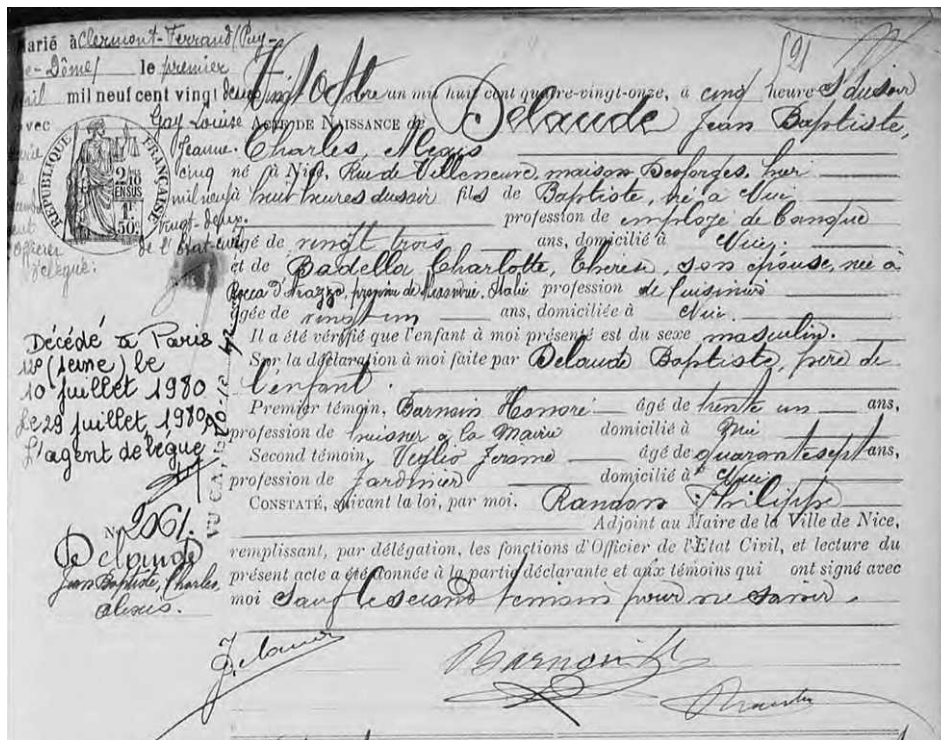 Marié à Clermont-Ferrand (Puy-
de-Dôme) le premier
avril mil neuf cent vingt deux
avec Gay Louise
Jeanne.
cinq
mil neuf
vingt-deux.
Officier de l'Etat-civil
délégué:
RÉPUBLIQUE FRANÇAISE
2/10 EN SUS
1F 50c
Décédé à Paris
12e (Seine) le
10 juillet 1980
Le 29 juillet, 1980
L'agent délégué
N° 2061.
Delaude
Jean Baptiste, Charles,
Alexis.
Vingt Octobre an mil huit cent quatre-vingt-onze, à cinq heures du soir
ACTE DE NAISSANCE de Delaude Jean Baptiste,
Charles, Alexis
né à Nice, Rue de Villeneuve, maison Desforges, hier
à huit heures du soir fils de Baptiste, né à Nice
profession de employé de banque
âgé de vingt trois ans, domicilié à Nice.
et de Badella Charlotte, Thérèse, son épouse, née à
Rocca d'Arazzo, Italie profession de Cuisinière
âgée de vingt un ans, domiciliée à Nice.
Il a été vérifié que l'enfant à moi présenté est du sexe masculin.
Sur la déclaration à moi faite par Delaude Baptiste, père de
l'enfant.
Premier témoin, Barnoin Honoré âgé de trente un ans,
profession de huissier à la Mairie domicilié à Nice
Second témoin, Veglio Jérome âgé de quarante sept ans,
profession de Jardinier domicilié à Nice
CONSTATÉ, suivant la loi, par moi. Randon Philippe
Adjoint au Maire de la Ville de Nice,
remplissant, par délégation, les fonctions d'Officier de l'Etat Civil, et lecture du
présent acte a été donnée à la partie déclarante et aux témoins qui ont signé avec
moi Sauf le second témoin pour ne savoir.
Delaude
Barnoin H